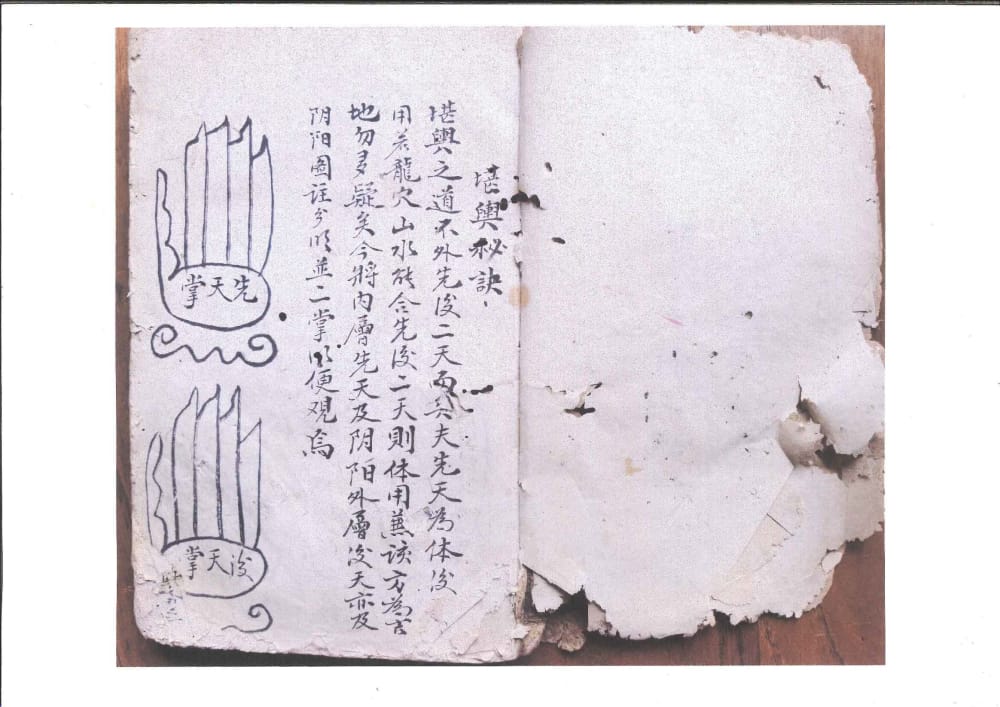 堪輿秘訣、
堪輿之道不外先後二天而矣夫先天為体後
用若龍穴山水能合先後二天則体用兼該方為吉
地勿多疑矣今將内層先天及阴阳外層後天亦及
阴阳圖註分明並二掌以便观焉
先天掌
後天掌